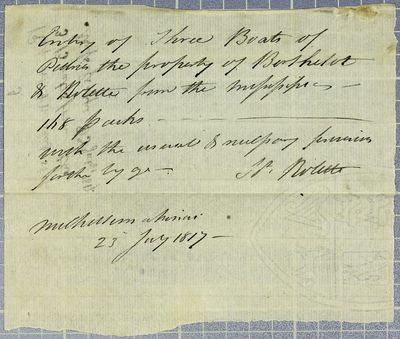 Entry of Three Boats of
Peltries the property of Berthelot
& Rolette from the Mississippi —
148 Packs —
with the usual & necessary provisions
for the voyage — Jh. Rolette
Michilimackinac
23 July 1817 —